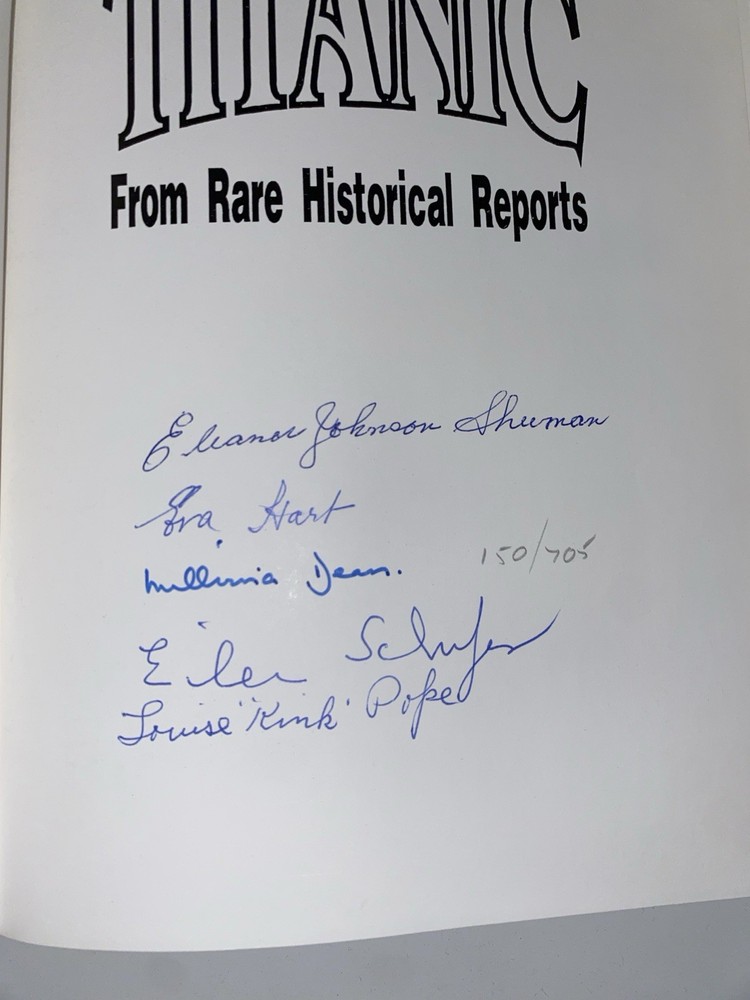 TITANIC
From Rare Historical Reports
Eleanor Johnson Shuman
Eva Hart
Millvina Dean.
150/705
Louise "Kink" Pope